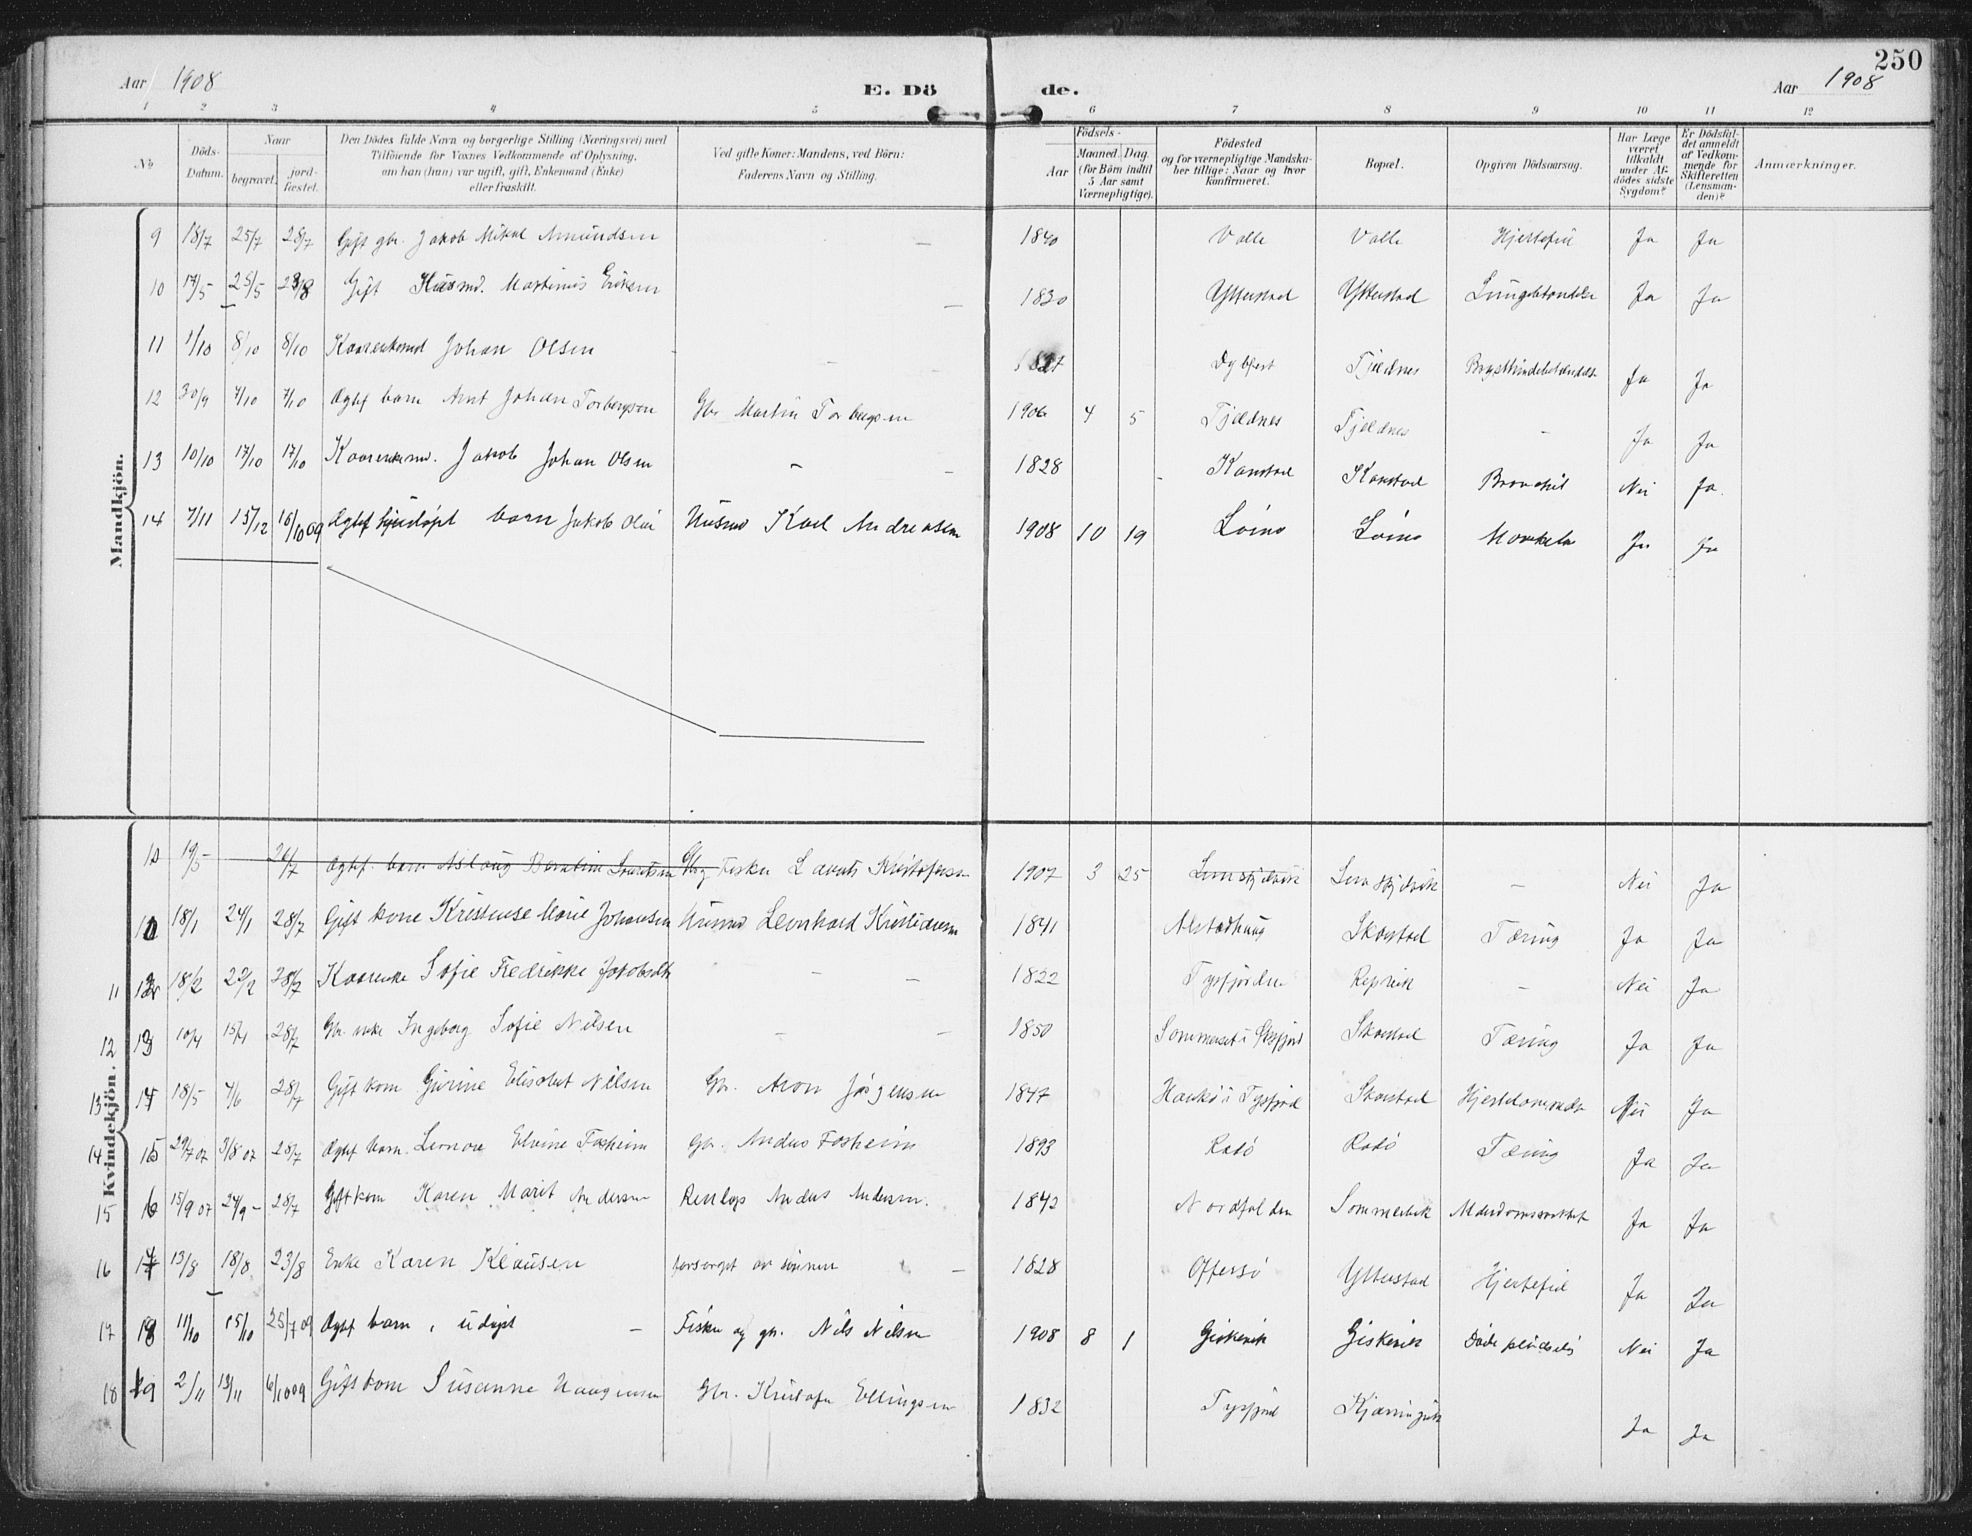 250
Aar 1908 E. Dö de. Aar 1908
1 2 3 4 5 6 7 8 9 10 11 12
No
Döds-Datum.
Naar
begravet.
jordfæstet.
Den Dödes fulde Navn og borgerlige Stilling (Næringsvei) med
Tilföiende for Voxnes Vedkommende af Oplysning,
om han (hun) var ugift, gift, Enkemand (Enke)
eller fraskilt.
Ved gifte Koner: Mandens, ved Börn:
Faderens Navn og Stilling.
Födsels-
Aar
Maaned. Dag.
(for Börn indtil
5 Aar samt
Værnepligtige).
Födested
og for værnepligtige Mandskaber tillige: Naar og hvor
konfirmeret.
Bopæl.
Opgiven Dödsaarsag.
Har Læge været tilkaldt under Afdödes sidste Sygdom?
Er Dödsfaldet anmeldt af Vedkommende for Skifteretten (Lensmanden)?
Anmærkninger.
Mandkjön.
9 18/7 25/7 28/7 Gift gbr. Jakob Mikal Amundsen — 1840 Valle Valle Hjertefeil Ja Ja
10 17/5 25/5 Gift Husmd. Martinus Eriksen — 1830 Ytterstad Ytterstad Ja Ja
11 1/10 8/10 8/10 Johan Olsen — Tjeldnes Ja Ja
12 30/9 7/10 7/10 Ægtef barn Arnt Johan Torbergsen Gbr Martin Torbergsen 1906 4 5 Tjeldnes Tjeldnes — Ja Ja
13 10/10 17/10 17/10 Jakob Johan Olsen — 1828 Kanstad Kanstad Bronchit Nei Ja.
14 7/11 15/12 16/10 09 Ægtef hjemdøpt barn Jakob Olai Husmd Karl Andreassen 1908 10 19 Løino Løino Ja Ja
Kvindekjön.
10 19/5 - 26/7 Ægtef. barn Aslaug Berntine Fisker Lorents Kristofersen 1907 3 25 — Nei Ja
18/1 24/1 28/7 Gift kone Kristense Marie Johansen Husmd Leonhard Kristiansen 1841 Alstadhaug Skarstad Tæring Ja Ja
11 12 18/2 22/2 28/7 Sofie Fredrikke — — 1822 Tysfjorden Repvik — Nei Ja
12 13 10/4 15/4 28/7 Gbr enke Ingeborg Sofie Nilsen — — 1850 Sommerset i Skarstad Tæring Ja Ja
13 14 18/5 7/6 28/7 Gift kone Gurine Elisabet Nilsen Gbr. Aron Jørgensen 1847 i Tysfjord Skarstad Nei Ja
14 15 29/7 07 3/8 07 28/7 Ægtef barn Elvine Fosheim Gbr. Andreas Fosheim 1893 Rodø Rodø Tæring Ja Ja
15 16 15/9 07 24/9 - 28/7 Gift kone Karen Marit Andersen Anders Andersen. 1842 Nordfolden Ja Ja
16 17 13/8 18/8 23/8 Enke Karen Klausen forsørget av sønnen — 1828 Offersø Ytterstad Hjertefeil Ja Ja
17 18 11/10 15/10 25/7 09 Ægtef barn, udøpt — Fisker og gbr. Nils Nilsen 1908 8 1 Giskevik Giskevik Døde pludselig Nei Ja
18 19 2/11 13/11 6/10 09 Gift kone Susanne Gbr. Kristofer Ellingsen 1832 Tysfjord Ja Ja